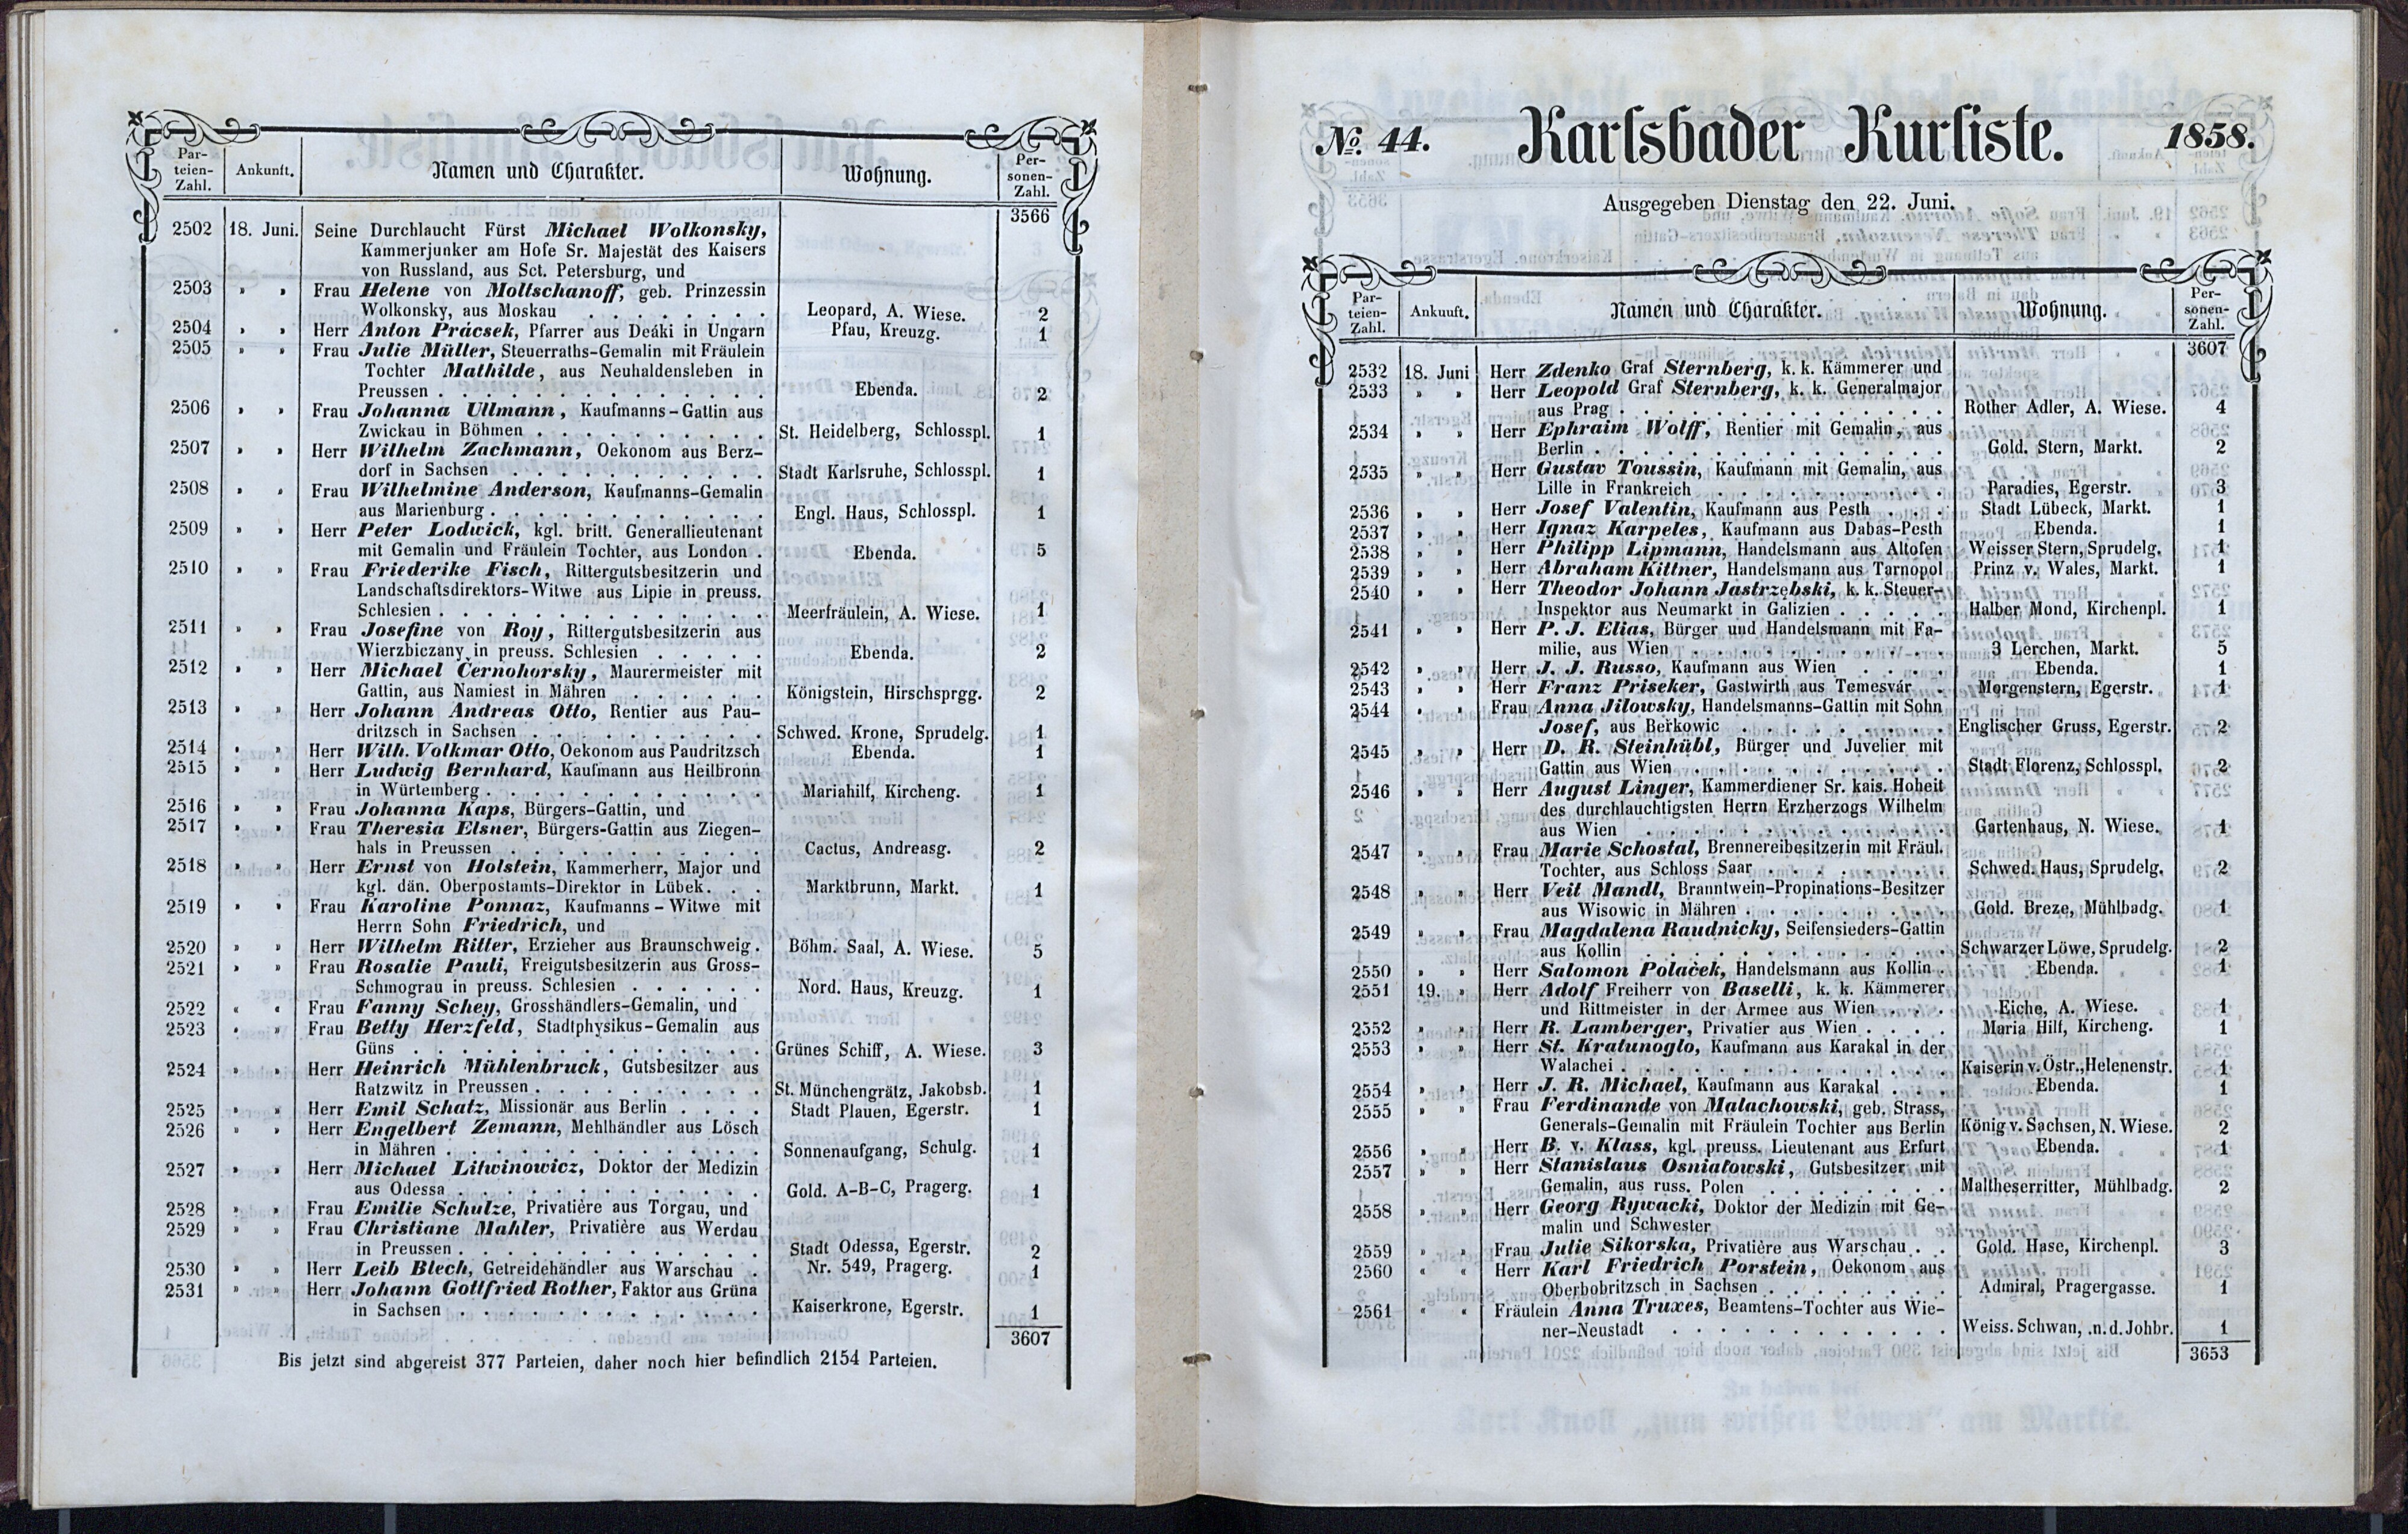 Par-
teien-
Zahl.
Ankunft.
Namen und Charakter.
Wohnung.
Per-
sonen-
Zahl.
3566
2502 18. Juni. Seine Durchlaucht Fürst Michael Wolkonsky,
Kammerjunker am Hofe Sr. Majestät des Kaisers
von Russland, aus Sct. Petersburg, und
2503 » » Frau Helene von Moltschanoff, geb. Prinzessin
Wolkonsky, aus Moskau . . . . . . . . Leopard, A. Wiese. 2
2504 » » Herr Anton Prácsek, Pfarrer aus Deáki in Ungarn Pfau, Kreuzg. 1
2505 » » Frau Julie Müller, Steuerraths-Gemalin mit Fräulein
Tochter Mathilde, aus Neuhaldensleben in
Preussen . . . . . . . . . . . . . . Ebenda. 2
2506 » » Frau Johanna Ullmann, Kaufmanns-Gattin aus
Zwickau in Böhmen . . . . . . . . . . St. Heidelberg, Schlosspl. 1
2507 » » Herr Wilhelm Zachmann, Oekonom aus Berz-
dorf in Sachsen . . . . . . . . . . . Stadt Karlsruhe, Schlosspl. 1
2508 » » Frau Wilhelmine Anderson, Kaufmanns-Gemalin
aus Marienburg . . . . . . . . . . . . Engl. Haus, Schlosspl. 1
2509 » » Herr Peter Lodwick, kgl. britt. Generallieutenant
mit Gemalin und Fräulein Tochter, aus London . Ebenda. 5
2510 » » Frau Friederike Fisch, Rittergutsbesitzerin und
Landschaftsdirektors-Witwe aus Lipie in preuss.
Schlesien . . . . . . . . . . . . . . Meerfräulein, A. Wiese. 1
2511 » » Frau Josefine von Roy, Rittergutsbesitzerin aus
Wierzbiczany in preuss. Schlesien . . . Ebenda. 2
2512 » » Herr Michael Černohorsky, Maurermeister mit
Gattin, aus Namiest in Mähren . . . . . . Königstein, Hirschsprgg. 2
2513 » » Herr Johann Andreas Otto, Rentier aus Pau-
dritzsch in Sachsen . . . . . . . . . . Schwed. Krone, Sprudelg. 1
2514 » » Herr Wilh. Volkmar Otto, Oekonom aus Pandritzsch Ebenda. 1
2515 » » Herr Ludwig Bernhard, Kaufmann aus Heilbronn
in Würtemberg . . . . . . . . . . . . Mariahilf, Kircheng. 1
2516 » » Frau Johanna Kaps, Bürgers-Gattin, und
2517 » » Frau Theresia Elsner, Bürgers-Gattin aus Ziegen-
hals in Preussen . . . . . . . . . . . Cactus, Andreasg. 2
2518 » » Herr Ernst von Holstein, Kammerherr, Major und
kgl. dän. Oberpostamts-Direktor in Lübek. . . Marktbrunn, Markt. 1
2519 » » Frau Karoline Ponnaz, Kaufmanns-Witwe mit
Herrn Sohn Friedrich, und
2520 » » Herr Wilhelm Ritter, Erzieher aus Braunschweig . Böhm. Saal, A. Wiese. 5
2521 » » Frau Rosalie Pauli, Freigutsbesitzerin aus Gross-
Schmograu in preuss. Schlesien . . . . . . Nord. Haus, Kreuzg. 1
2522 « « Frau Fanny Schey, Grosshändlers-Gemalin, und
2523 » » Frau Betty Herzfeld, Stadtphysikus-Gemalin aus
Güns . . . . . . . . . . . . . . . Grünes Schiff, A. Wiese. 3
2524 » » Herr Heinrich Mühlenbruck, Gutsbesitzer aus
Ratzwitz in Preussen . . . . . . . . . . St. Münchengrätz, Jakobsb. 1
2525 » » Herr Emil Schatz, Missionär aus Berlin . . . . Stadt Plauen, Egerstr. 1
2526 » » Herr Engelbert Zemann, Mehlhändler aus Lösch
in Mähren . . . . . . . . . . . . . . Sonnenaufgang, Schulg. 1
2527 » » Herr Michael Litwinowicz, Doktor der Medizin
aus Odessa . . . . . . . . . . . . . . Gold. A-B-C, Pragerg. 1
2528 » » Frau Emilie Schulze, Privatière aus Torgau, und
2529 » » Frau Christiane Mahler, Privatière aus Werdau
in Preussen . . . . . . . . . . . . . Stadt Odessa, Egerstr. 2
2530 » » Herr Leib Blech, Getreidehändler aus Warschau . Nr. 549, Pragerg. 1
2531 » » Herr Johann Gottfried Rother, Faktor aus Grüna
in Sachsen . . . . . . . . . . . . . Kaiserkrone, Egerstr. 1
3607
Bis jetzt sind abgereist 377 Parteien, daher noch hier befindlich 2154 Parteien.
No. 44. Karlsbader Kurliste. 1858.
Ausgegeben Dienstag den 22. Juni.
Par-
teien-
Zahl.
Ankunft.
Namen und Charakter.
Wohnung.
Per-
sonen-
Zahl.
3607
2532 18. Juni Herr Zdenko Graf Sternberg, k. k. Kämmerer und
2533 » » Herr Leopold Graf Sternberg, k. k. Generalmajor
aus Prag . . . . . . . . . . . . . . Rother Adler, A. Wiese. 4
2534 » » Herr Ephraim Wolff, Rentier mit Gemalin, aus
Berlin . . . . . . . . . . . . . . . Gold. Stern, Markt. 2
2535 » » Herr Gustav Toussin, Kaufmann mit Gemalin, aus
Lille in Frankreich . . . . . . . . . . Paradies, Egerstr. 3
2536 » » Herr Josef Valentin, Kaufmann aus Pesth . . . Stadt Lübeck, Markt. 1
2537 » » Herr Ignaz Karpeles, Kaufmann aus Dabas-Pesth Ebenda. 1
2538 » » Herr Philipp Lipmann, Handelsmann aus Altofen Weisser Stern, Sprudelg. 1
2539 » » Herr Abraham Kittner, Handelsmann aus Tarnopol Prinz v. Wales, Markt. 1
2540 » » Herr Theodor Johann Jastrzębski, k. k. Steuer-
Inspektor aus Neumarkt in Galizien . . . . . Halber Mond, Kirchenpl. 1
2541 » » Herr P. J. Elias, Bürger und Handelsmann mit Fa-
milie, aus Wien . . . . . . . . . . . 3 Lerchen, Markt. 5
2542 » » Herr J. J. Russo, Kaufmann aus Wien . . . . Ebenda. 1
2543 » » Herr Franz Priseker, Gastwirth aus Temesvár . Morgenstern, Egerstr. 1
2544 » » Frau Anna Jilowsky, Handelsmanns-Gattin mit Sohn
Josef, aus Beřkowic . . . . . . . . . Englischer Gruss, Egerstr. 2
2545 » » Herr D. R. Steinhübl, Bürger und Juvelier mit
Gattin aus Wien . . . . . . . . . . . Stadt Florenz, Schlosspl. 2
2546 » » Herr August Linger, Kammerdiener Sr. kais. Hoheit
des durchlauchtigsten Herrn Erzherzogs Wilhelm
aus Wien . . . . . . . . . . . . . Gartenhaus, N. Wiese. 1
2547 » » Frau Marie Schostal, Brennereibesitzerin mit Fräul.
Tochter, aus Schloss Saar . . . . . . . . Schwed. Haus, Sprudelg. 2
2548 » » Herr Veit Mandl, Branntwein-Propinations-Besitzer
aus Wisowic in Mähren . . . . . . . . . Gold. Breze, Mühlbadg. 1
2549 » » Frau Magdalena Raudnicky, Seifensieders-Gattin
aus Kollin . . . . . . . . . . . . . Schwarzer Löwe, Sprudelg. 2
2550 » » Herr Salomon Polaček, Handelsmann aus Kollin . Ebenda. 1
2551 19. » Herr Adolf Freiherr von Baselli, k. k. Kämmerer
und Rittmeister in der Armee aus Wien . . . Eiche, A. Wiese. 1
2552 » » Herr R. Lamberger, Privatier aus Wien . . . . Maria Hilf, Kircheng. 1
2553 » » Herr St. Kratunoglo, Kaufmann aus Karakal in der
Walachei . . . . . . . . . . . . . . Kaiserin v. Östr., Helenenstr. 1
2554 » » Herr J. R. Michael, Kaufmann aus Karakal . . . Ebenda. 1
2555 » » Frau Ferdinande von Malachowski, geb. Strass,
Generals-Gemalin mit Fräulein Tochter aus Berlin König v. Sachsen, N. Wiese. 2
2556 » » Herr B. v. Klass, kgl. preuss. Lieutenant aus Erfurt Ebenda. 1
2557 » » Herr Stanislaus Osniatowski, Gutsbesitzer mit
Gemalin, aus russ. Polen . . . . . . . . Maltheserritter, Mühlbadg. 2
2558 » » Herr Georg Rywacki, Doktor der Medizin mit Ge-
malin und Schwester
2559 » » Frau Julie Sikorska, Privatière aus Warschau . . Gold. Hase, Kirchenpl. 3
2560 « « Herr Karl Friedrich Porstein, Oekonom aus
Oberbobritzsch in Sachsen . . . . . . . . Admiral, Pragergasse. 1
2561 « « Fräulein Anna Truxes, Beamtens-Tochter aus Wie-
ner-Neustadt . . . . . . . . . . . . Weiss. Schwan, .n. d. Johbr. 1
3653